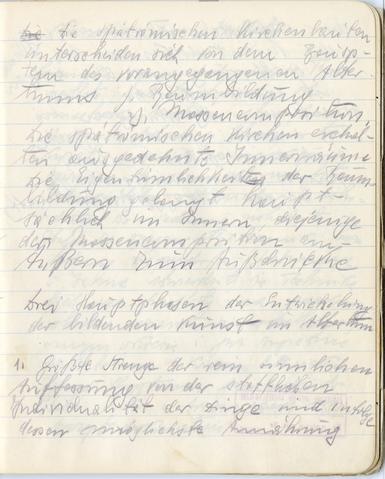 die die spätrömischen Kirchenbauten
unterscheiden sich von dem Haupt-
des vorangegangenen Alter-
tums 1. Raumbildung
2. Massenkomposition,
die spätrömischen Kirchen erhal-
ten ausgedehnte Innenräume
die Eigentümlichkeit der Raum-
bildung gelangt haupt-
sächlich im Innern, diejenige
der Massencomposition am
Äußern zum Ausdrucke
Drei Hauptphasen der Entwickelung
der bildenden Kunst im Altertum
1. Größte Strenge der rein sinnlichen
Auffassung von der stofflichen
Individualität der Dinge und infolge
dessen möglichste Annäherung